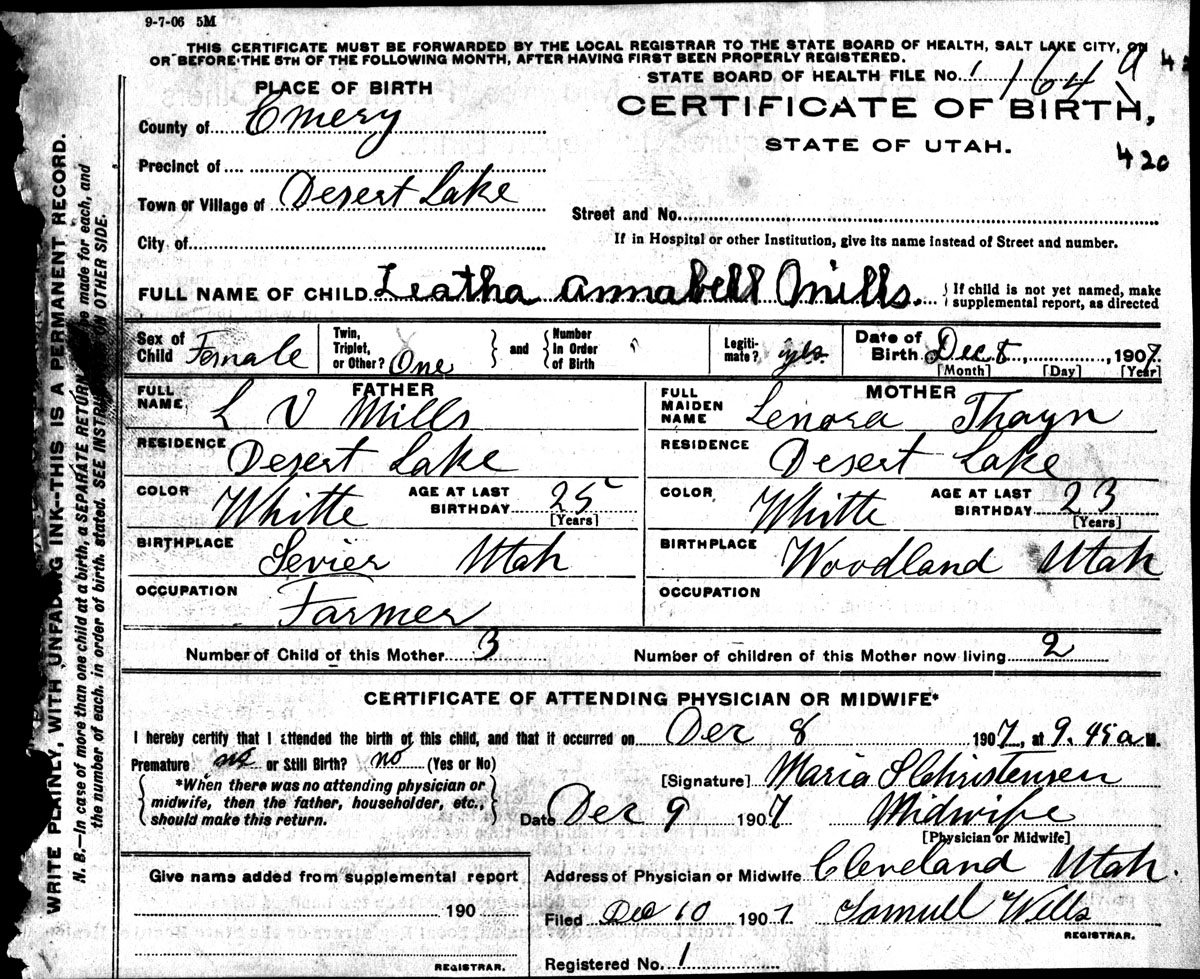 9-7-06 5M
THIS CERTIFICATE MUST BE FORWARDED BY THE LOCAL REGISTRAR TO THE STATE BOARD OF HEALTH, SALT LAKE CITY, ON
OR BEFORE THE 5TH OF THE FOLLOWING MONTH, AFTER HAVING FIRST BEEN PROPERLY REGISTERED.
STATE BOARD OF HEALTH FILE No. 164
CERTIFICATE OF BIRTH,
STATE OF UTAH.
420
PLACE OF BIRTH
County of Emery
Precinct of
Town or Village of Desert Lake
City of
Street and No.
If in Hospital or other Institution, give its name instead of Street and number.
FULL NAME OF CHILD Leatha Annabell Mills.
{ If child is not yet named, make
supplemental report, as directed
Sex of Child Female
Twin, Triplet, or Other? One } and { Number In Order of Birth
Legiti-mate? yes
Date of Birth Dec 8, 1907.
[Month] [Day] [Year]
FATHER
FULL NAME L V Mills
RESIDENCE Desert Lake
COLOR Whitte AGE AT LAST BIRTHDAY 25
[Years]
BIRTHPLACE Sevier Utah
OCCUPATION Farmer
MOTHER
FULL MAIDEN NAME Lenora Thayn
RESIDENCE Desert Lake
COLOR Whitte AGE AT LAST BIRTHDAY 23
[Years]
BIRTHPLACE Woodland Utah
OCCUPATION
Number of Child of this Mother 3 Number of children of this Mother now living 2
CERTIFICATE OF ATTENDING PHYSICIAN OR MIDWIFE*
I hereby certify that I attended the birth of this child, and that it occurred on Dec 8 1907, at 9.45 a M.
Premature or Still Birth? no (Yes or No)
{ *When there was no attending physician or
midwife, then the father, householder, etc.,
should make this return. }
[Signature] Maria S Christensen
Date Dec 9 1907 Midwife
[Physician or Midwife]
Address of Physician or Midwife Cleveland Utah.
Filed Dec 10 1907. Samuel Wells
REGISTRAR.
Registered No. 1
Give name added from supplemental report
190
REGISTRAR.
WRITE PLAINLY, WITH UNFADING INK--THIS IS A PERMANENT RECORD.
N. B.—In case of more than one child at a birth, a SEPARATE RETURN be made for each, and
the number of each, in order of birth, stated. SEE INSTRUCTIONS ON OTHER SIDE.